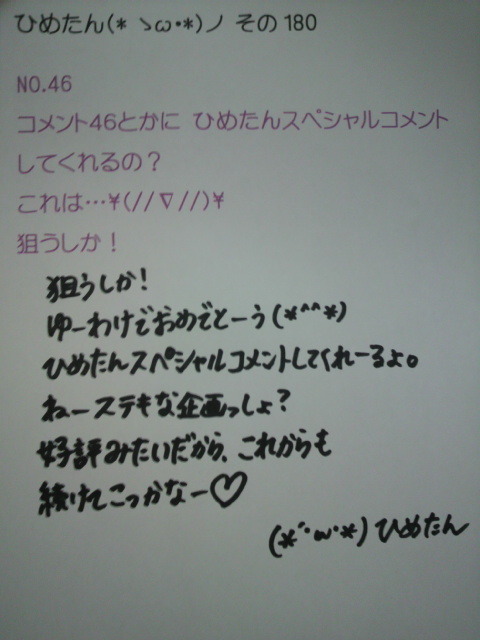 ひめたん(*ゝω･*)ノ その180
NO.46
コメント46とかに ひめたんスペシャルコメント
してくれるの？
これは…¥(//∇//)¥
狙うしか！
狙うしか！
ゆーわけでおめでとーう(*^^*)
ひめたんスペシャルコメントしてくれーるよ。
ねーステキな企画っしょ？
好評みたいだから、これからも
続けてこっかなー♡
(*´･ω･*)ひめたん